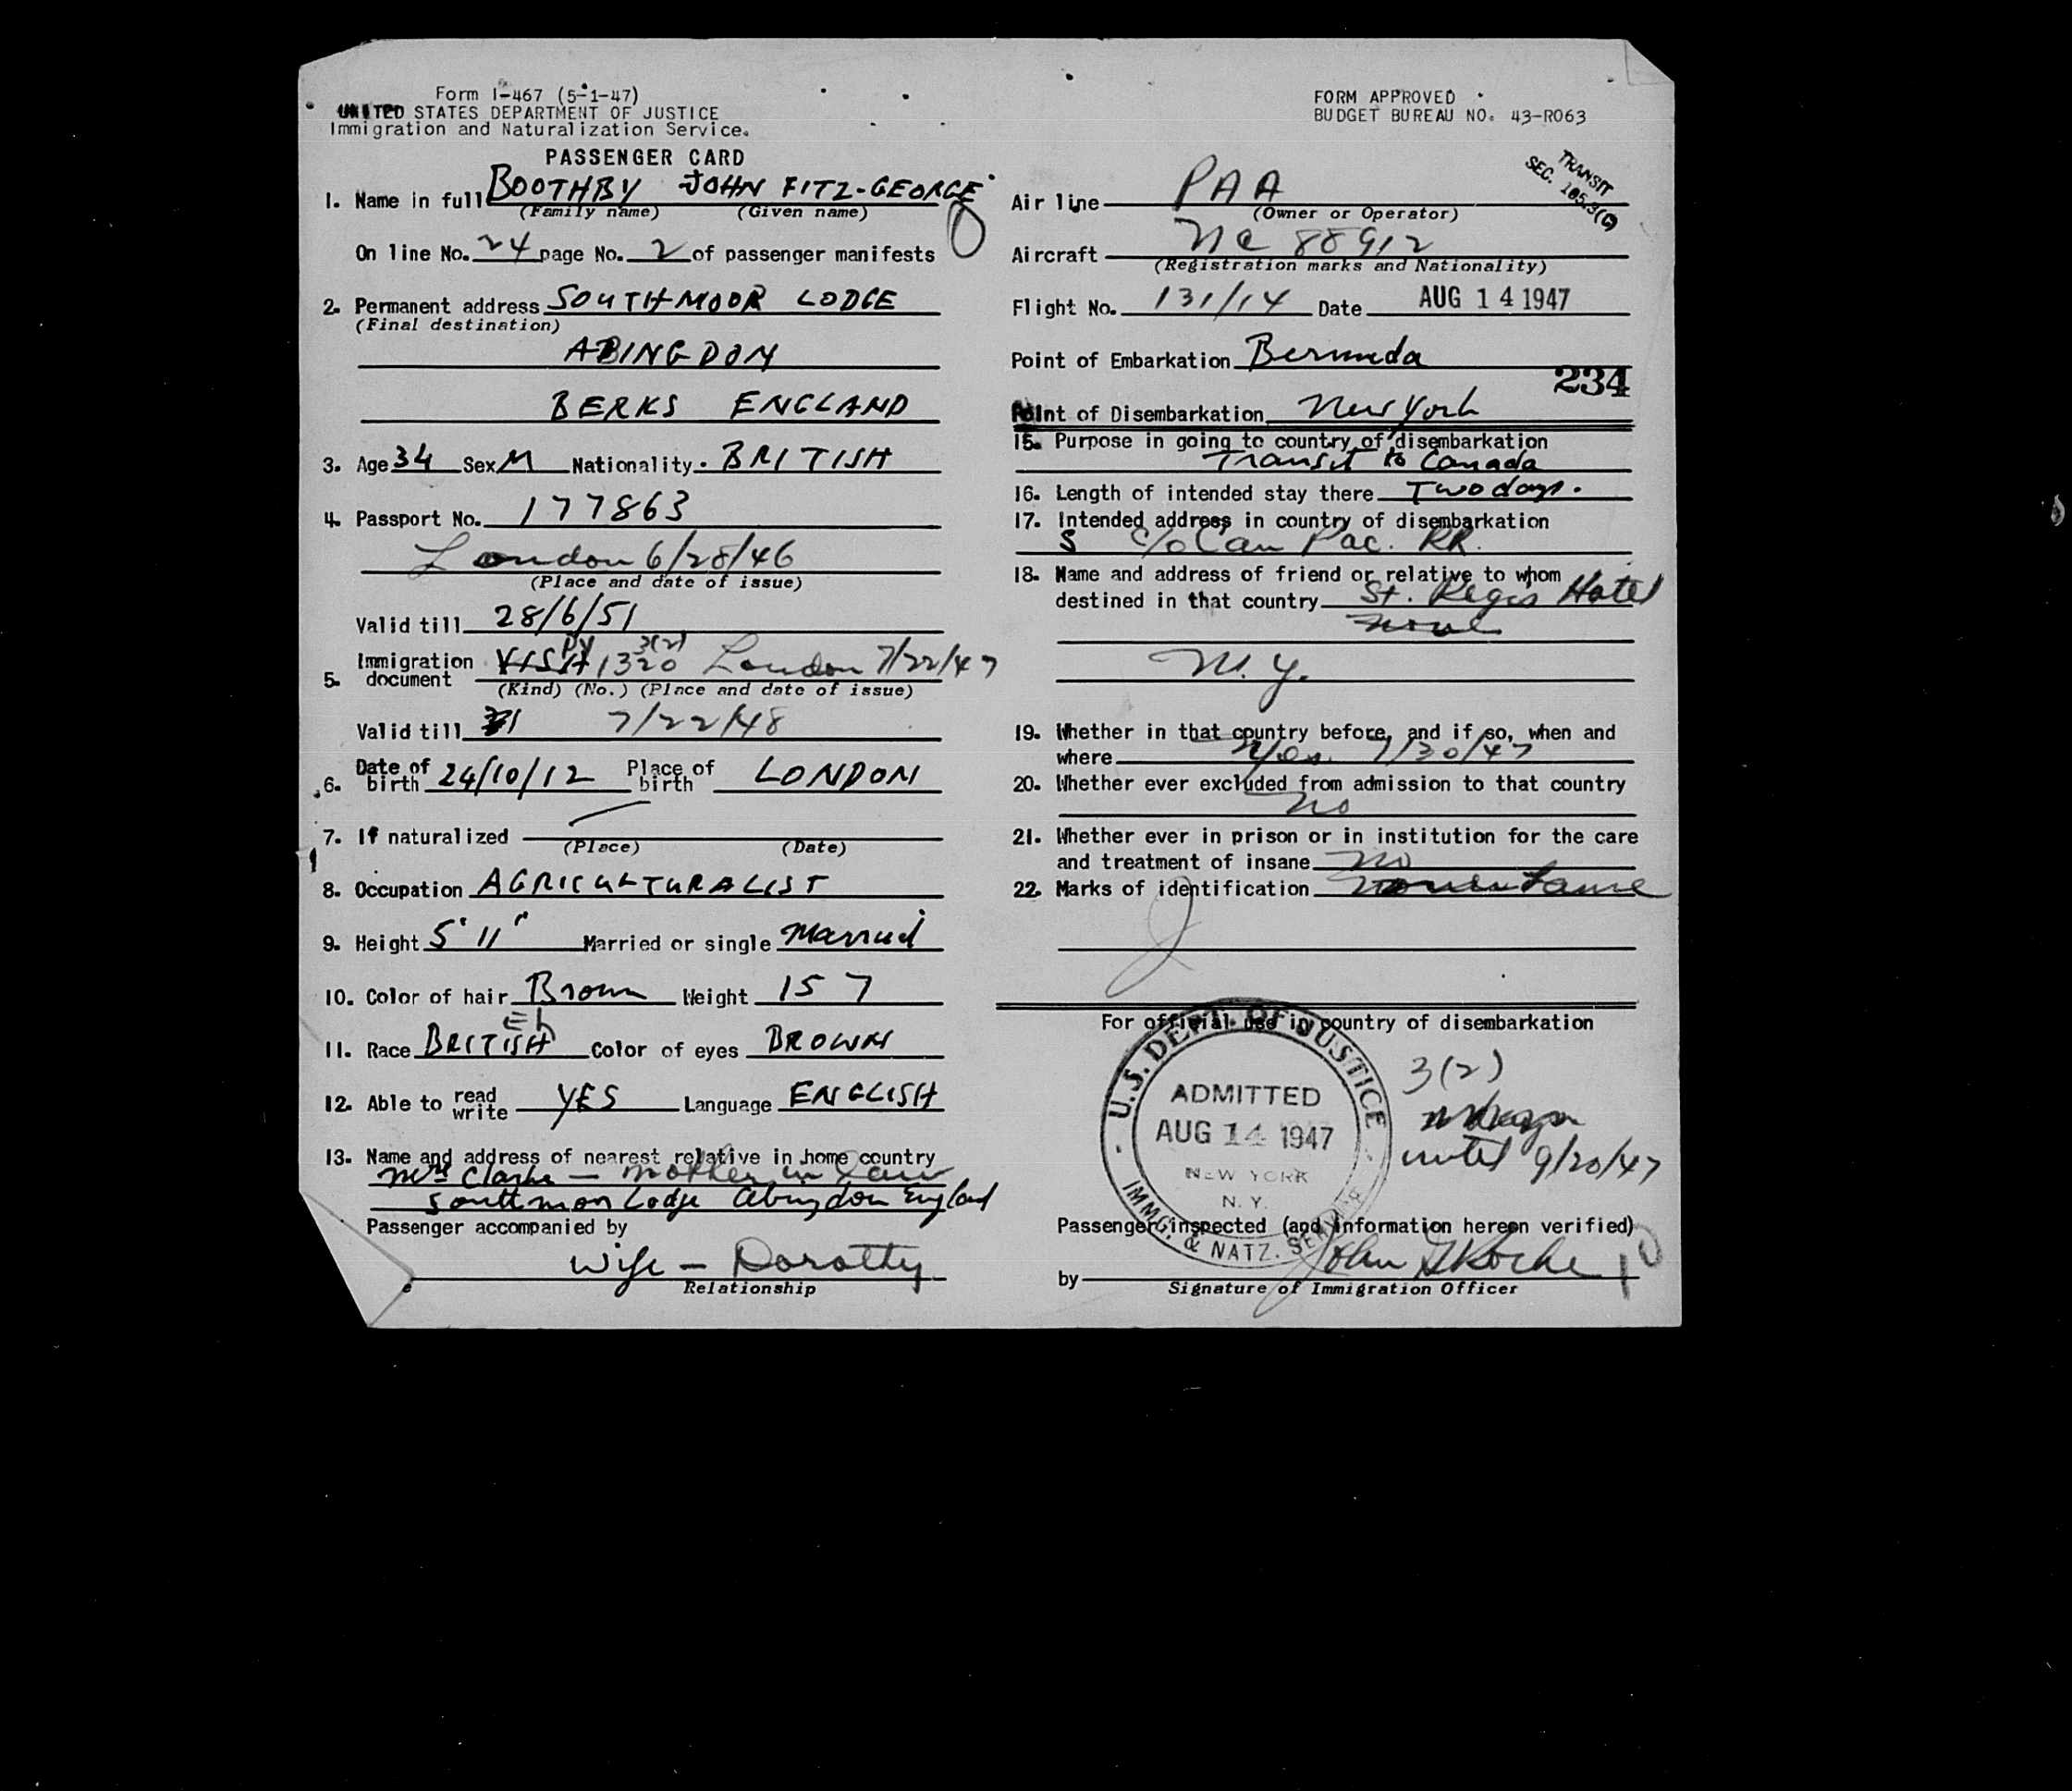 Form I-467 (5-1-47)
UNITED STATES DEPARTMENT OF JUSTICE
Immigration and Naturalization Service.
PASSENGER CARD
1. Name in full BOOTHBY JOHN FITZ-GEORGE
(Family name) (Given name)
On line No. 24 page No. 2 of passenger manifests
2. Permanent address SOUTHMOOR LODGE
(Final destination)
ABINGDON
BERKS ENGLAND
3. Age 34 Sex M Nationality. BRITISH
4. Passport No. 177863
London 6/28/46
(Place and date of issue)
Valid till 28/6/51
PV 3(2)
5. Immigration document VISA 1320 London 7/22/47
(Kind) (No.) (Place and date of issue)
Valid till 7/22/48
6. Date of birth 24/10/12 Place of birth LONDON
7. If naturalized
(Place) (Date)
8. Occupation AGRICULTURALIST
9. Height 5'11" Married or single Married
10. Color of hair Brown Weight 157
11. Race BRITISH Color of eyes BROWN
12. Able to read write YES Language ENGLISH
13. Name and address of nearest relative in home country
Mrs Clarke — mother in law
Southmoor Lodge Abingdon England
Passenger accompanied by
Wife — Dorothy
Relationship
FORM APPROVED
BUDGET BUREAU NO. 43-R063
TRANSIT
SEC. 165.3(G)
Air line PAA
(Owner or Operator)
Aircraft NC 88912
(Registration marks and Nationality)
Flight No. 131/14 Date AUG 14 1947
Point of Embarkation Bermuda
234
Point of Disembarkation New York
15. Purpose in going to country of disembarkation
Transit to Canada
16. Length of intended stay there Two days.
17. Intended address in country of disembarkation
S c/o Can Pac. RR.
18. Name and address of friend or relative to whom
destined in that country St. Regis Hotel
none
N.Y.
19. Whether in that country before, and if so, when and
where Yes. 7/30/47
20. Whether ever excluded from admission to that country
no
21. Whether ever in prison or in institution for the care
and treatment of insane no
22. Marks of identification
For official use in country of disembarkation
U.S. DEPT. OF JUSTICE
ADMITTED
AUG 14 1947
NEW YORK
N.Y.
IMMG. & NATZ. SERVICE
3(2)
until 9/20/47
Passenger inspected (and information hereon verified)
by John Roche
Signature of Immigration Officer